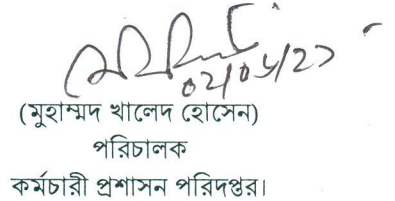 ০২/০৬/২১
(মুহাম্মদ খালেদ হোসেন)
পরিচালক
কর্মচারী প্রশাসন পরিদপ্তর।